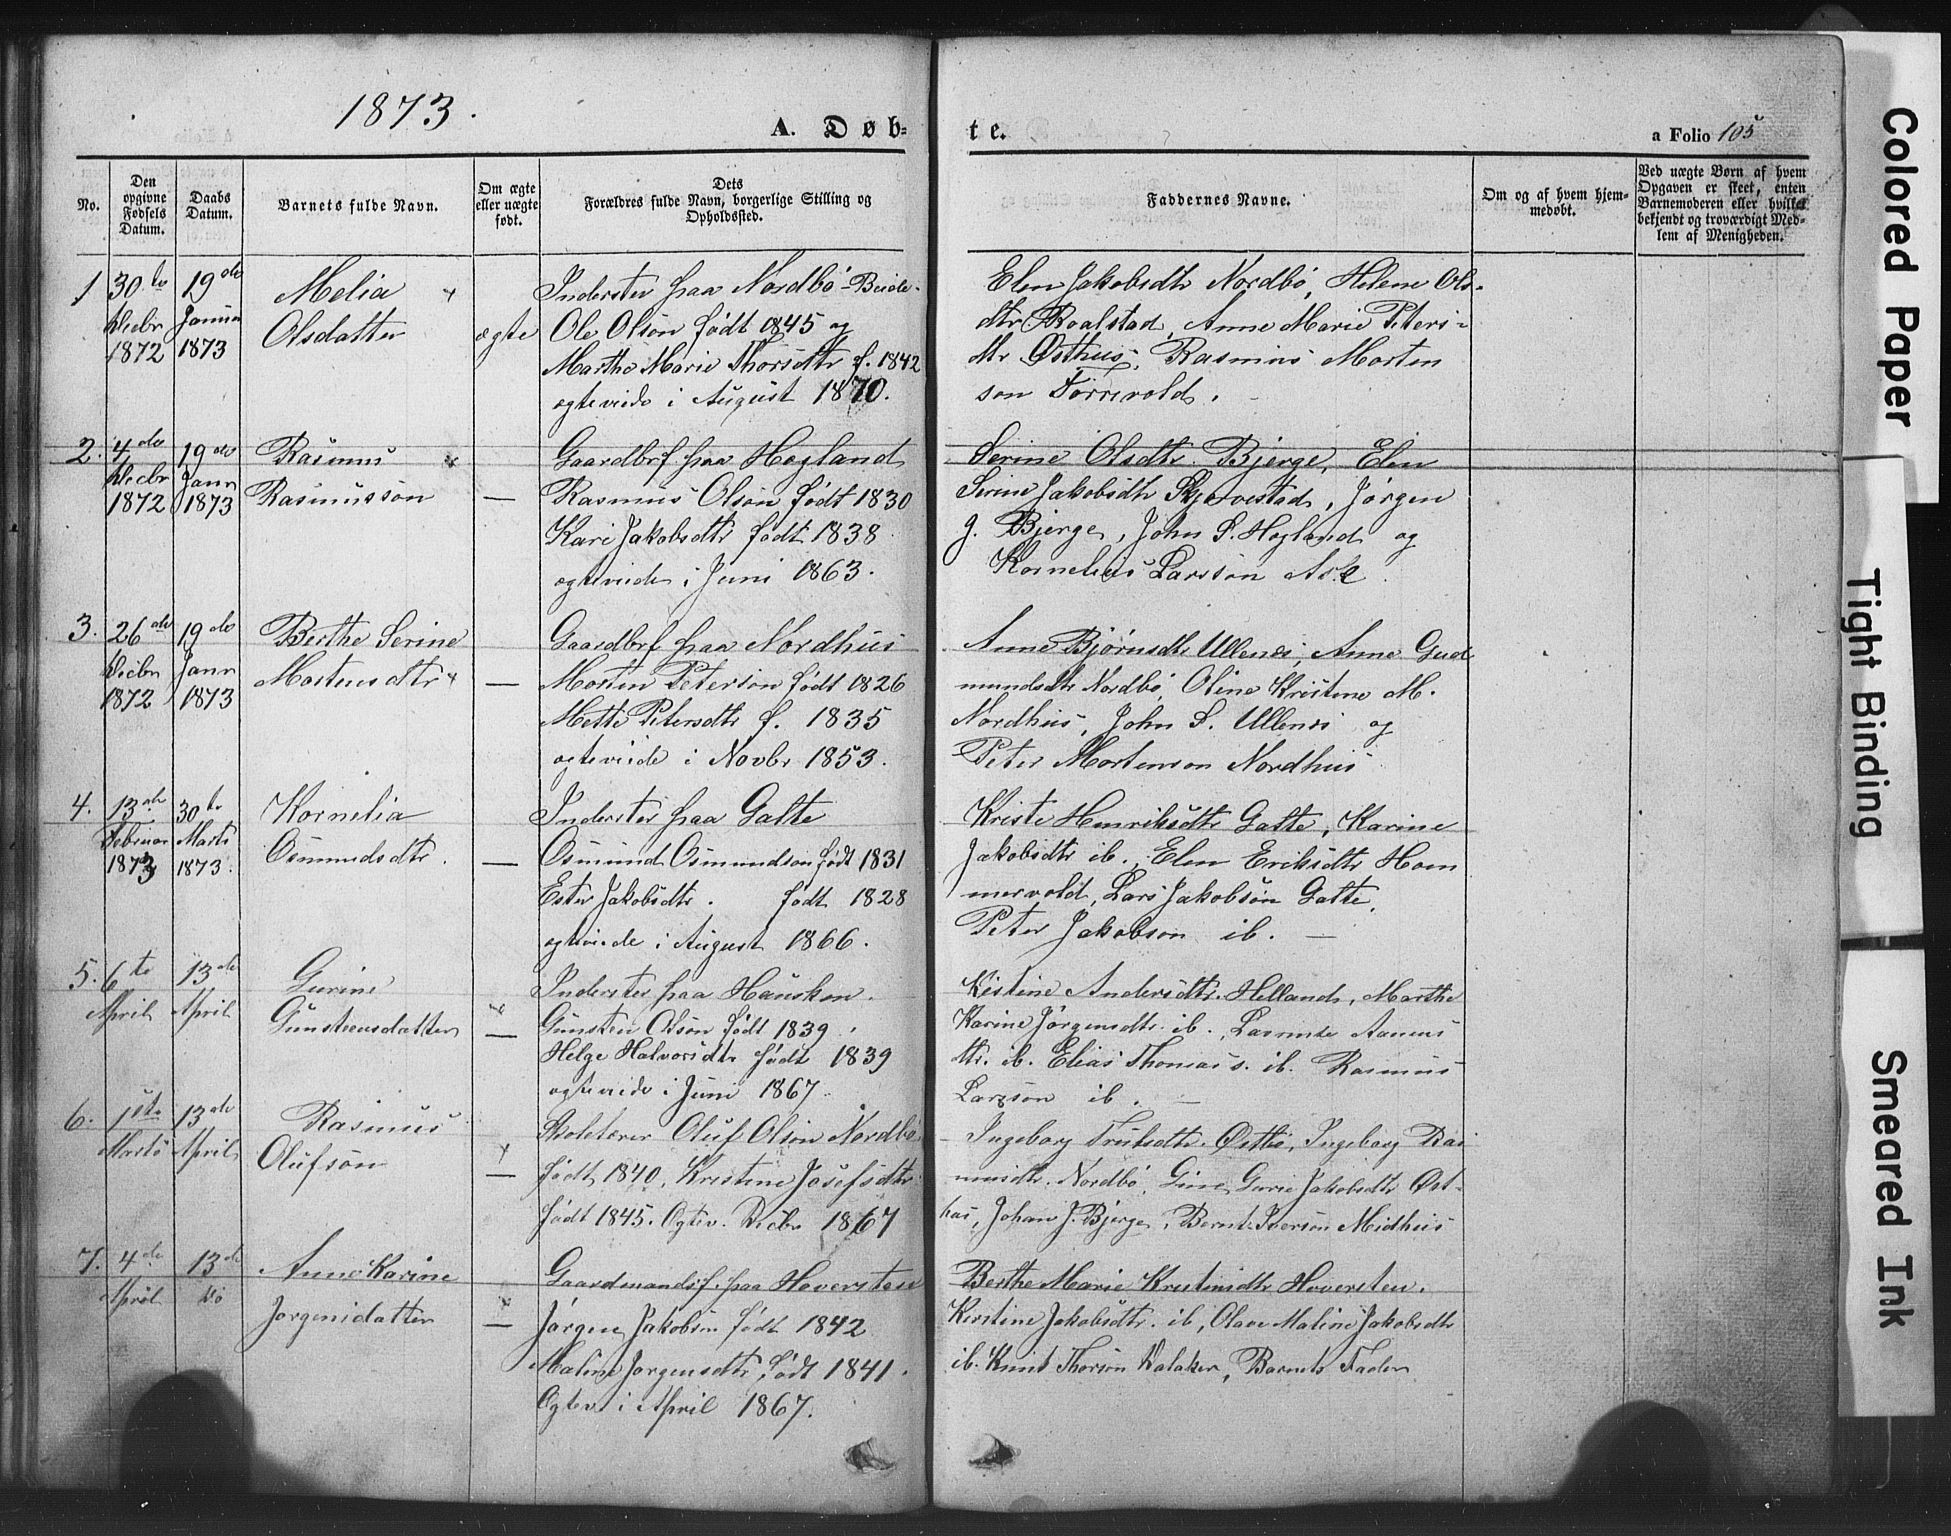 1873.
A. Døb-
te.
a Folio 105
No.
Den opgivne Fødsels Datum.
Daabs Datum.
Barnets fulde Navn.
Om ægte eller uægte født.
Dets Forældres fulde Navn, borgerlige Stilling og Opholdssted.
Faddernes Navne.
Om og af hvem hjemmedøbt.
Ved uægte Børn af hvem Opgaven er skeet, enten Barnemoderen eller hvilket bekjendt og troværdigt Medlem af Menigheden.
1 30te Decbr 1872
19de Januar 1873
Melia
Olsdatter
ægte
Inderster paa Nordbø
Ole Olson født 1845 og
Marthe Marie Thorsdtr f. 1842
ægteviede i August 1870.
Elen Jakobsdtr Nordbø, Helene Ols-
dtr Roalstad, Anne Marie Peters-
dtr Østhus, Rasmus Morten
son Førrevold.
2. 4de Decbr 1872
19de Janr 1873
Rasmus
Rasmusson
—
Gaardbrf paa Hegland
Rasmus Olson født 1830
Kari Jakobsdtr født 1838
ægteviede i Juni 1863.
Serine Olsdtr Bjerge, Elen
Serine Jakobsdtr Skjervestad, Jørgen
J. Bjerge, John S. Hegland og
Kornelius Larsson Ask
3. 26de Decbr 1872
19de Janr 1873
Berthe Serine
Mortensdtr
—
Gaardbrf paa Nordhus
Morten Peterson født 1826
Mette Petersdtr f. 1835
ægteviede i Novbr 1853.
Anne Bjørnsdtr Ullenes, Anne Gud
mundsdtr Nordbø, Oline Kristine M.
Nordhus, John S. Ullenes og
Peter Mortenson Nordhus
4. 13de Februar 1873
30te Marts 1873.
Kornelia
Osmundsdtr.
—
Inderster paa Galte
Osmund Osmundson født 1831
Ester Jakobsdtr. født 1828
ægteviede i August 1866.
Kriste Henriksdtr Galte, Karine
Jakobsdtr ib. Elen Eriksdtr Hom
mervold, Lars Jakobson Galte,
Peter Jakobson ib. —
5. 6te April
13de April
Gurine
Gunsteensdatter
—
Inderster paa Hausken.
Gunsten Olson født 1839.
Helge Halvorsdtr født 1839
ægteviede i Juni 1867.
Kistine Andersdtr. Helland, Marthe
Karine Jørgensdtr. ib.
dtr. ib. Elias Thomas s. ib. Rasmus
Larsson ib. —
6. 1ste Marts
13de April
Rasmus
Olufson
—
Skolelærer Oluf Olson Nordbø
født 1840, Kristine Josefsdtr
født 1845. Ægtev. Decbr 1867
Ingeborg Osthus, Ingeborg Ras
musdtr. Nordbø, Gurie Jakobsdtr Øst-
hus, Johan J. Bjerge, Bernt Iverson Midhus
7. 4de April
13de do
Anne Karine
Jorgensdatter
—
Gaardmandsf. paa Hoversten
Jørgen Jakobsen født 1842
Maline Jorgensdtr født 1841.
Ægtev. i April 1867.
Berthe Marie Kristinsdtr Hoversten.
Kirstine Jakobsdtr. ib, Olave Maline Jakobsdtr
ib. Knut Thorson Dalaker, Barnets Fader
Colored Paper
Tight Binding
Smeared Ink